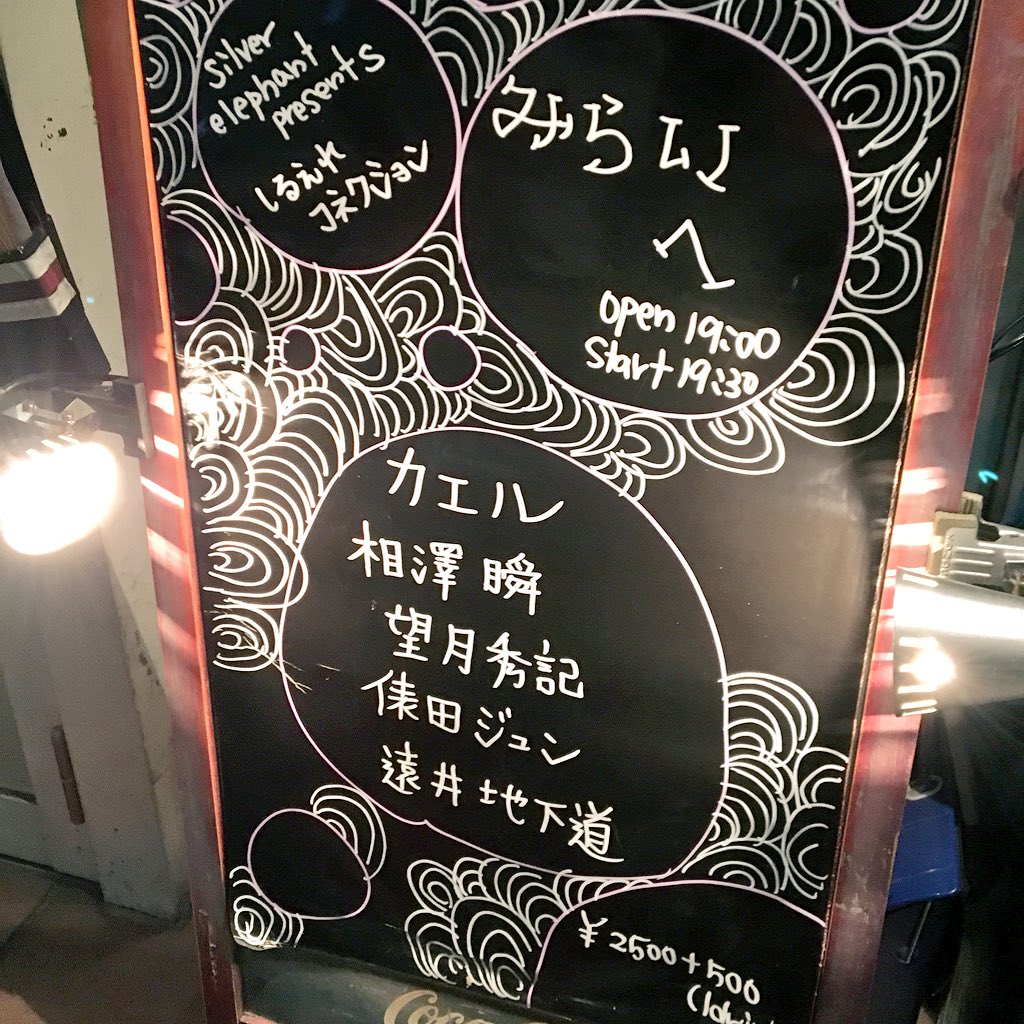 silver
elephant
presents
しるえれ
コネクション
みらい
へ
open 19:00
start 19:30
カエル
相澤 瞬
望月秀記
俵田ジュン
遠井地下道
¥2500+500